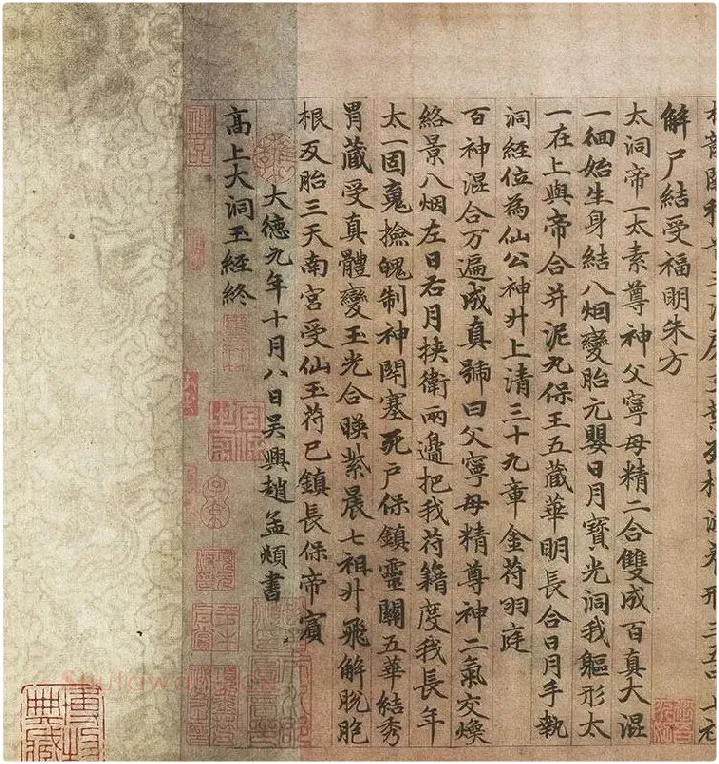 解尸結受福明朱方
太洞帝一太素尊神父寧母精二合雙成百真大混
一徊始生身結八烟變胎元嬰日月寶光洞我軀形太
一在上與帝合并泥丸保王五藏華明長合日月手執
洞經位為仙公神升上清三十九章金苻羽庭
百神混合万遍成真號曰父寧母精尊神二氣交煥
絡景八烟左日右月挾衛兩邉把我苻籍度我長年
太一固䰟撿魄制神閇塞死戶保鎮靈關五華結秀
胃藏受真體變玉光合暎紫晨七祖升飛解脫胞
根反胎三天南宮受仙玉苻已鎮長保帝賔
大德九年十月八日吳興趙孟頫書
高上大洞玉經終